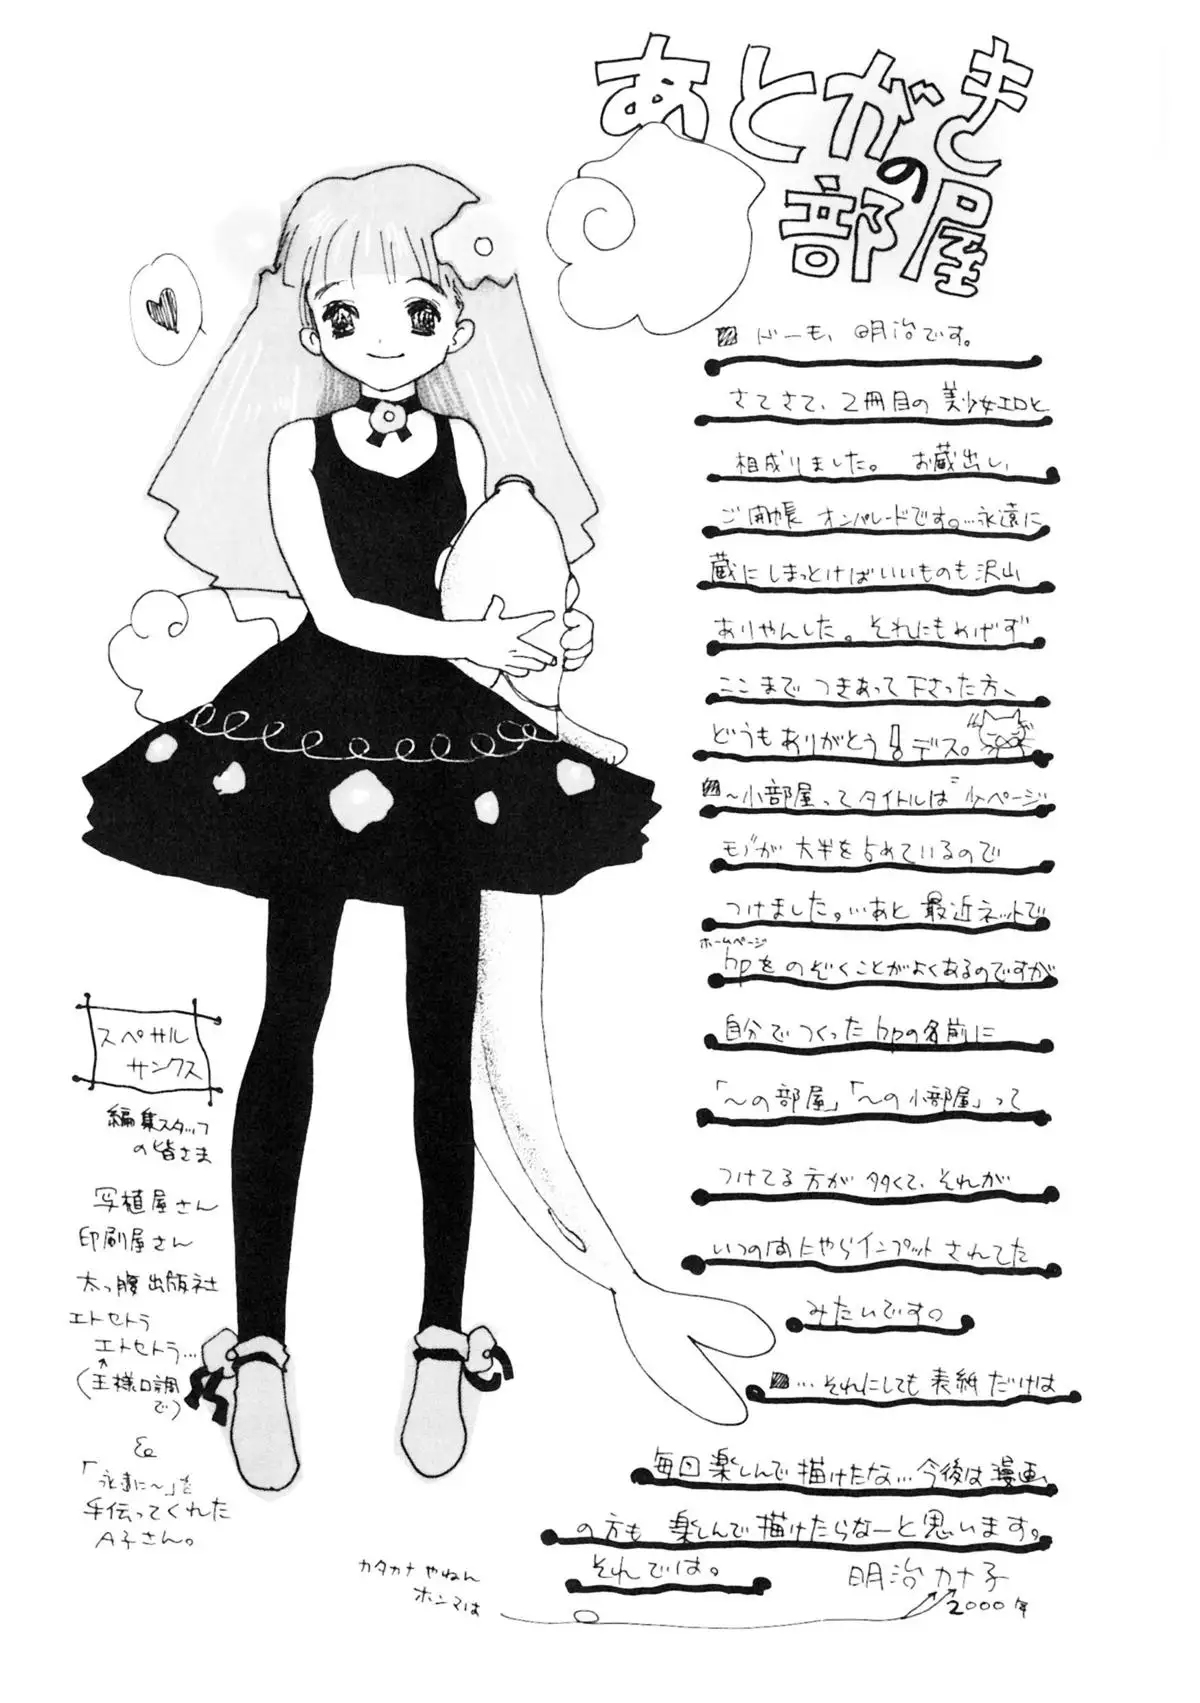 あとがき
の
部屋
ドーモ、明治です。
さてさて、2冊目の美少女エロと
相成りました。 お蔵出し、
ご開帳オンパレードです。…永遠に
蔵にしまっとけばいいものも沢山
ありやんした。それにもめげず
ここまでつきあって下さった方、
どうもありがとう!デス。
～小部屋ってタイトルは少ページ
モノが大半を占めているので
つけました。…あと最近ネットで
ホームページ
hpをのぞくことがよくあるのですが
自分でつくったhpの名前に
「～の部屋」「～の小部屋」って
つけてる方が多くて、それが
いつの間にやらインプットされてた
みたいです。
…それにしても表紙だけは
毎回楽しんで描けたな…今後は漫画
の方も楽しんで描けたらなーと思います。
それでは。
明治カナ子
2000年
カタカナやねん
ホンマは
スペサル
サンクス
編集スタッフ
の皆さま
写植屋さん
印刷屋さん
太っ腹出版社
エトセトラ
エトセトラ…
(王様口調
で)
&
「永遠に～」を
手伝ってくれた
A子さん。